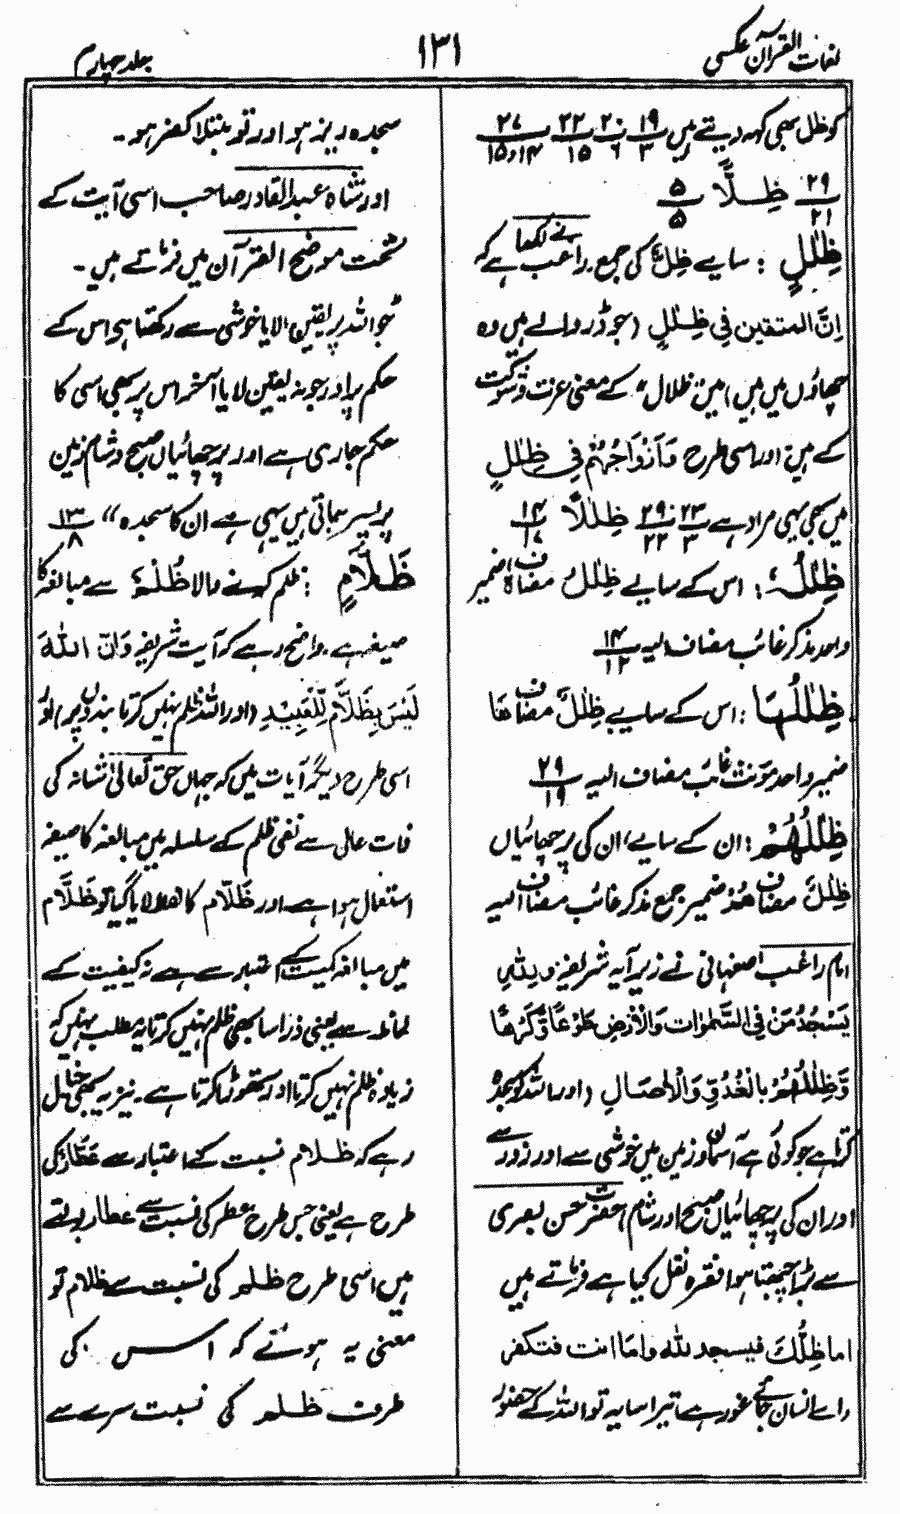 لغات القرآن عکسی
۱۳۱
جلد چہارم
کو ظل بھی کہہ دیتے ہیں ۱۹/۳ ۲۰/۶ ۲۲/۱۵ ۲۷/۱۴و۱۵
۲۹/۲۱ ظِلًّا ۵/۵
ظِلٰلٍ : سایے ظِلٌّ کی جمع۔ راغب نے لکھا ہے کہ
اِنَّ المتقین فِی ظِلٰلٍ (جو ڈر والے ہیں وہ
چھاؤں میں ہیں) میں ظلال " کے معنی عزت و شوکت
کے ہیں اور اسی طرح وَاَزْوَاجُہُمْ فِی ظِلٰلٍ
میں بھی یہی مراد ہے ۲۳/۳ ۲۹/۲۲ ظِلٰلًا ۱۴/۱۷
ظِلٰلُہٗ : اس کے سایے ظِلٰلُ مضاف ہٗ ضمیر
واحد مذکر غائب مضاف الیہ ۱۴/۱۲
ظِلٰلُہَا : اس کے سایے ظِلٰلُ مضاف ھَا
ضمیر واحد مؤنث غائب مضاف الیہ ۲۹/۱۹
ظِلٰلُهُمْ : ان کے سایے، ان کی پرچھائیاں
ظِلٰلُ مضاف ھُمْ ضمیر جمع مذکر غائب مضاف الیہ
امام راغب اصفہانی نے زیر آیہ شریفہ وَلِلّٰہِ
یَسْجُدُ مَنْ فِی السَّمٰوٰات وَالْاَرْضِ طَوْعًا وَّکَرْھًا
وَّظِلٰلُهُمْ بِالْغُدُوِّ وَالْاٰصَالِ (اور اللہ کو سجدہ
کرتا ہے جو کوئی ہے آسمان و زمین میں خوشی سے اور زور سے
اور ان کی پرچھائیاں صبح اور شام) حضرت حسن بصری
سے بڑا چبھتا ہوا فقرہ نقل کیا ہے فرماتے ہیں
اما ظِلُّكَ فیسجد للہ واَمَّا انت فتکفر
واے انسان جائے غور ہے تیرا سایہ تو اللہ کے حضور
سجدہ ریز ہو اور تو مبتلا کفر ہو۔
اور شاہ عبدالقادر صاحب اسی آیت کے
تحت موضح القرآن میں فرماتے ہیں۔
"جو اللہ پر یقین لایا خوشی سے رکھتا ہی اس کے
حکم پر اور جو نہ یقین لایا آخر اس پر بھی اسی کا
حکم جاری ہے اور پرچھائیاں صبح و شام زمین
پر پسر جاتی ہیں یہی ہے ان کا سجدہ" ۱۳/۸
ظَلَّامٍ : ظلم کرنے والا ظُلْمٌ سے مبالغہ کا
صیغہ ہے۔ واضح رہے کہ آیت شریفہ وَاَنَّ اللّٰہَ
لَیْسَ بِظَلَّامٍ لِّلْعَبِیْدِ (اور اللہ ظلم نہیں کرتا بندوں پر) اور
اسی طرح دیگر آیات میں کہ جہاں حق تعالیٰ شانہ کی
ذات عالی سے نفی ظلم کے سلسلہ میں مبالغہ کا صیغہ
استعمال ہوا ہے اور ظَلَّام کا لایا گیا تو ظَلَّام
میں مبالغہ کمیت کے اعتبار سے ہے نہ کیفیت کے
لحاظ سے یعنی ذرا سا بھی ظلم نہیں کرتا یہ مطلب نہیں کہ
زیادہ ظلم نہیں کرتا اور تھوڑا کرتا ہے۔ نیز یہ بھی خیال
رہے کہ ظلام نسبت کے اعتبار سے ہے عَطَّار کی
طرح ہے یعنی جس طرح عطر کی نسبت سے عطار بولتے
ہیں اسی طرح ظلم کی نسبت سے ظلام تو
معنی یہ ہوتے کہ اس کی
طرف ظلم کی نسبت سرے سے